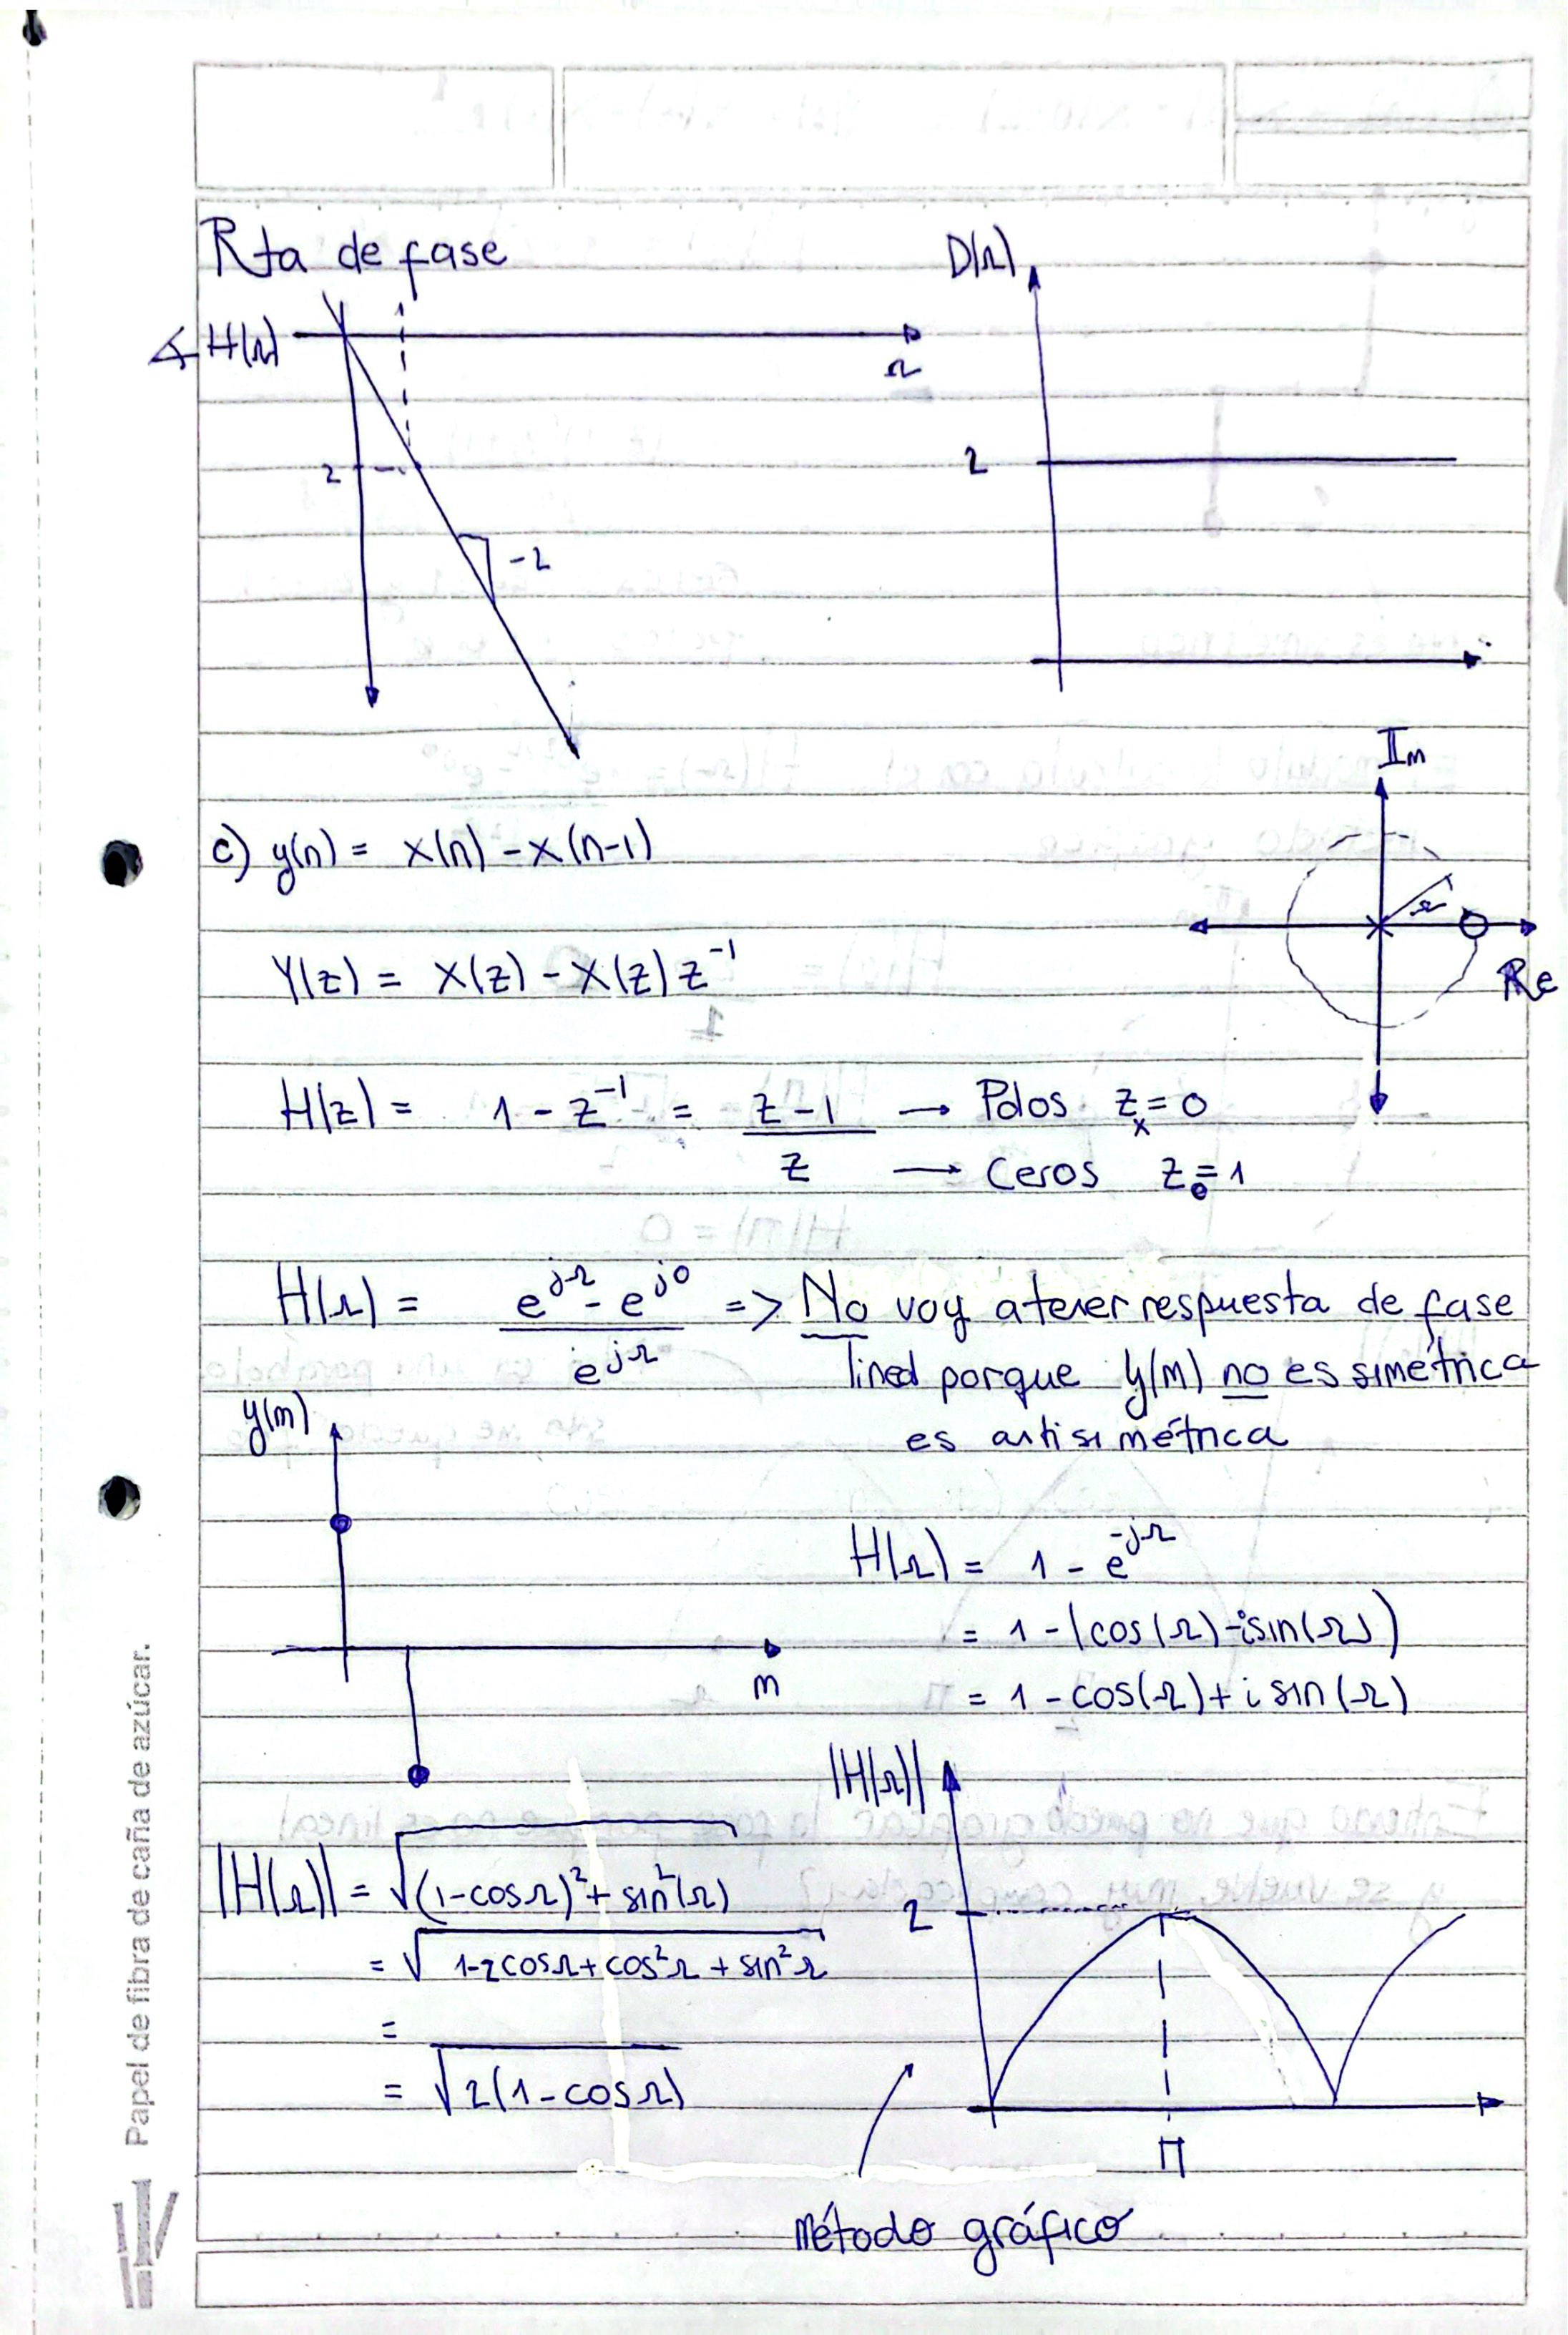 Rta de fase
D(Ω)
∡ H(Ω)
Ω
2
2
-2
Im
c) y(n) = x(n) - x(n-1)
Ω
Re
Y(z) = X(z) - X(z) z⁻¹
H(z) = 1 - z⁻¹ = (z-1)/z → Polos z_x = 0
→ Ceros z_o = 1
H(Ω) = (e^{jΩ} - e^{j0})/e^{jΩ} => No voy a tener respuesta de fase
lineal porque y(m) no es simétrica
es antisimétrica
y(m)
m
H(Ω) = 1 - e^{-jΩ}
= 1 - (cos(Ω) - isin(Ω))
= 1 - cos(Ω) + i sin(Ω)
|H(Ω)|
|H(Ω)| = √((1-cosΩ)² + sin²(Ω))
= √(1-2cosΩ + cos²Ω + sin²Ω)
=
= √(2(1-cosΩ))
2
π
Método gráfico
Papel de fibra de caña de azúcar.